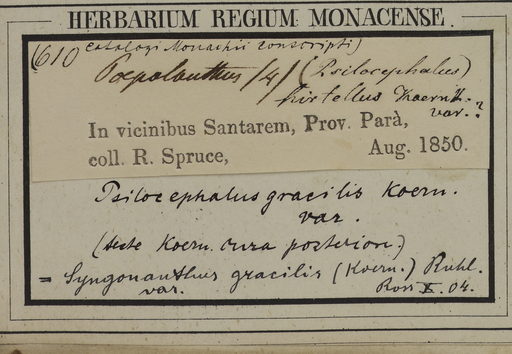 HERBARIUM REGIUM MONACENSE.
(610 Catalogi Monachii conscripti)
Paepalanthus /4/ (Psilocephalus)
hirtellus Koernk.
var.?
In vicinibus Santarem, Prov. Parà,
coll. R. Spruce, Aug. 1850.
Psilocephalus gracilis Koern.
var.
(teste Koern. cura posterior.)
= Syngonanthus gracilis (Koern.) Ruhl.
var. Ross X. 04.